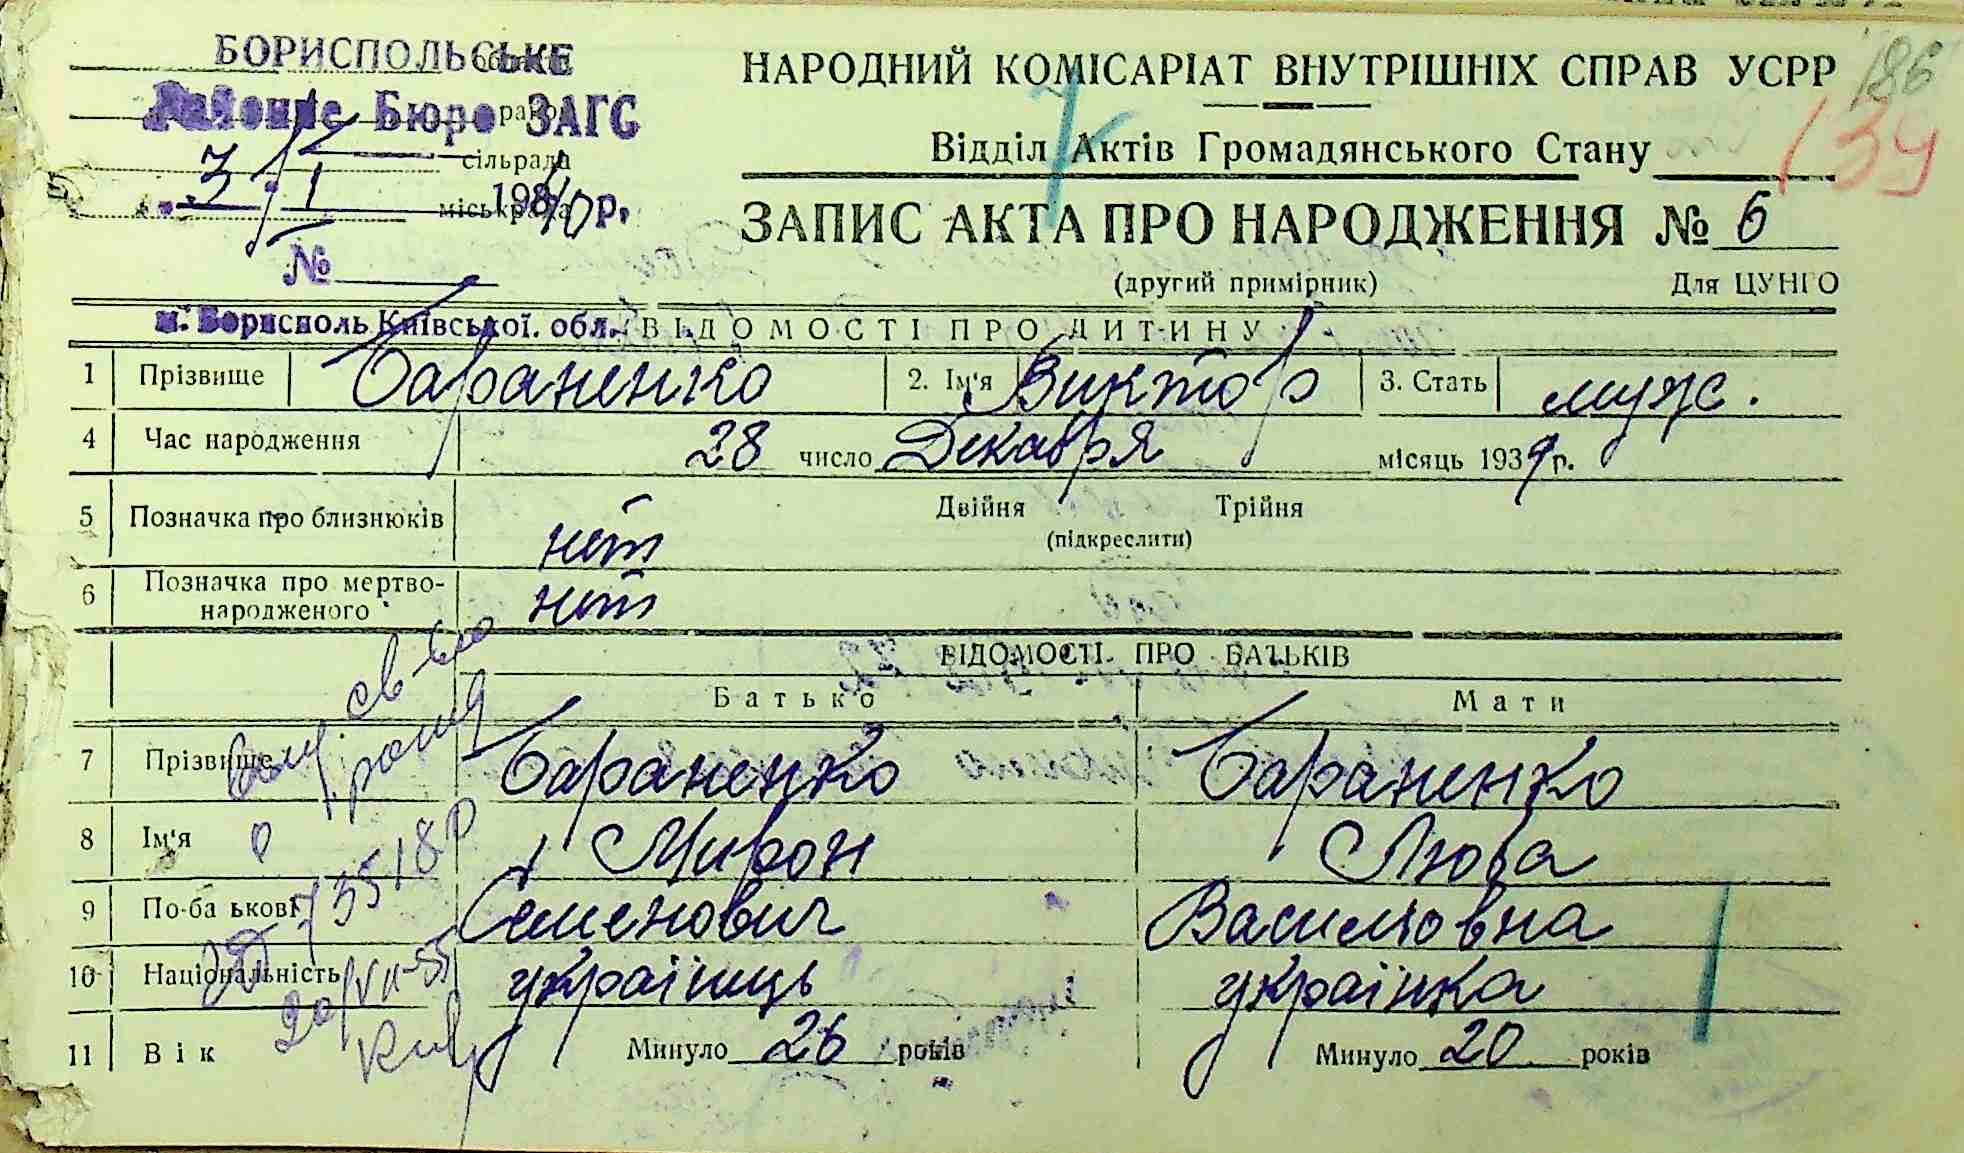 БОРИСПОЛЬСЬКЕ
Районне Бюро ЗАГС
сільрада
3/I 1940 р.
міськрада
№
м. Борисполь Київської. обл.
НАРОДНИЙ КОМІСАРІАТ ВНУТРІШНІХ СПРАВ УСРР
186
139
Відділ Актів Громадянського Стану
ЗАПИС АКТА ПРО НАРОДЖЕННЯ № 6
(другий примірник) Для ЦУНГО
ВІДОМОСТІ ПРО ДИТИНУ
1 Прізвище Бараненко 2. Ім'я Виктор 3. Стать муж.
4 Час народження 28 число Декабря місяць 1939 г.
5 Позначка про близнюків нет Двійня Трійня
(підкреслити)
6 Позначка про мертво-
народженого нет
ВІДОМОСТІ ПРО БАТЬКІВ
Батько Мати
7 Прізвище Бараненко Бараненко
8 Ім'я Мирон Люба
9 По-ба ькові Семенович Васильовна
10 Національність українць українка
11 Вік Минуло 26 років Минуло 20 років
св-во
о рожд
735180